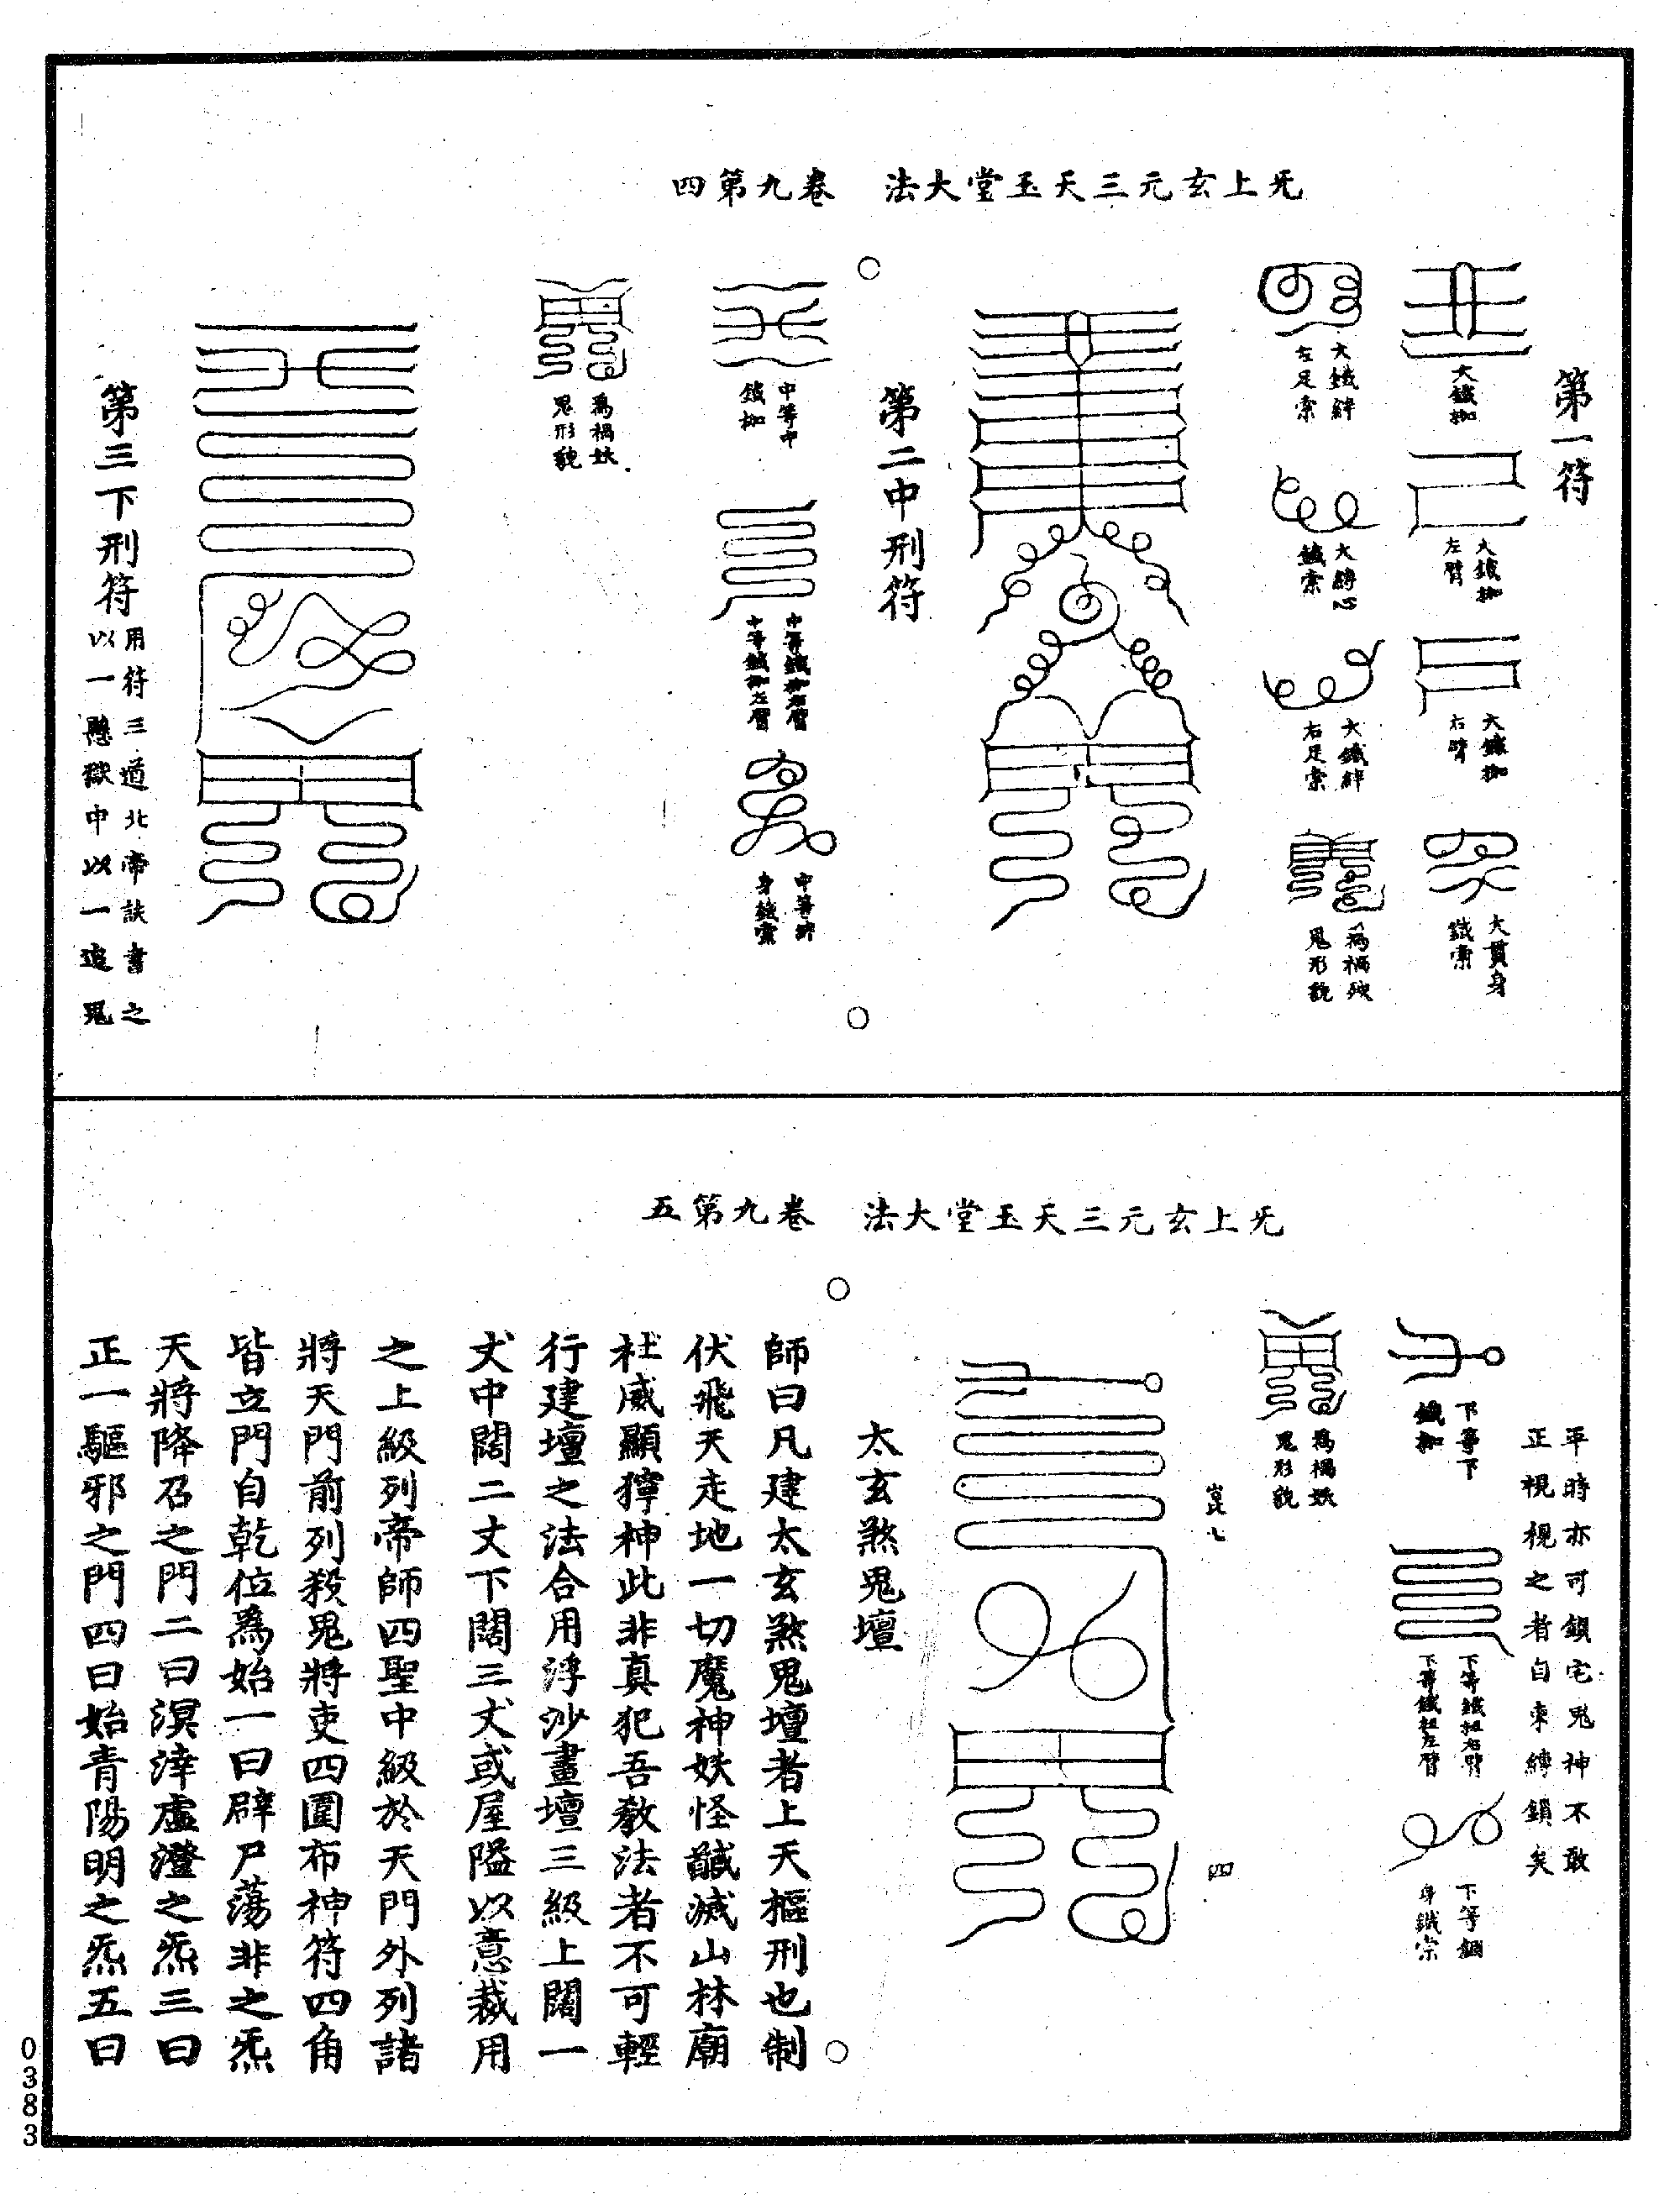 无上玄元三天玉堂大法　卷九第四
第一符
大鐵枷
大鐵枷
左臂
大鐵枷
右臂
大貫身
鐵索
大鐵絆
左足索
大縛心
鐵索
大鐵絆
右足索
為禍殃
鬼形貌
第二中刑符
中等中
鐵枷
中等鐵枷右臂
中等鐵枷左臂
中等綁
身鐵索
為禍妖
鬼形貌
第三下刑符
用符三道北帝訣書之
以一懸獄中以一追鬼
无上玄元三天玉堂大法　卷九第五
平時亦可鎖宅鬼神不敢
正視視之者自束縛鎖矣
下等下
鐵枷
下等鐵杻右臂
下等鐵杻左臂
下等鎖
身鐵索
為禍妖
鬼形貌
崑七
四
太玄煞鬼壇
師曰凡建太玄煞鬼壇者上天樞刑也制
伏飛天走地一切魔神妖怪馘滅山林廟
社威顯獰神此非真犯吾教法者不可輕
行建壇之法合用浮沙畫壇三級上闊一
丈中闊二丈下闊三丈或屋隘以意裁用
之上級列帝師四聖中級於天門外列諸
將天門前列殺鬼將吏四圍布神符四角
皆立門自乾位為始一曰辟尸蕩非之炁
天將降召之門二曰溟涬虛澄之炁三曰
正一驅邪之門四曰始青陽明之炁五曰
0383